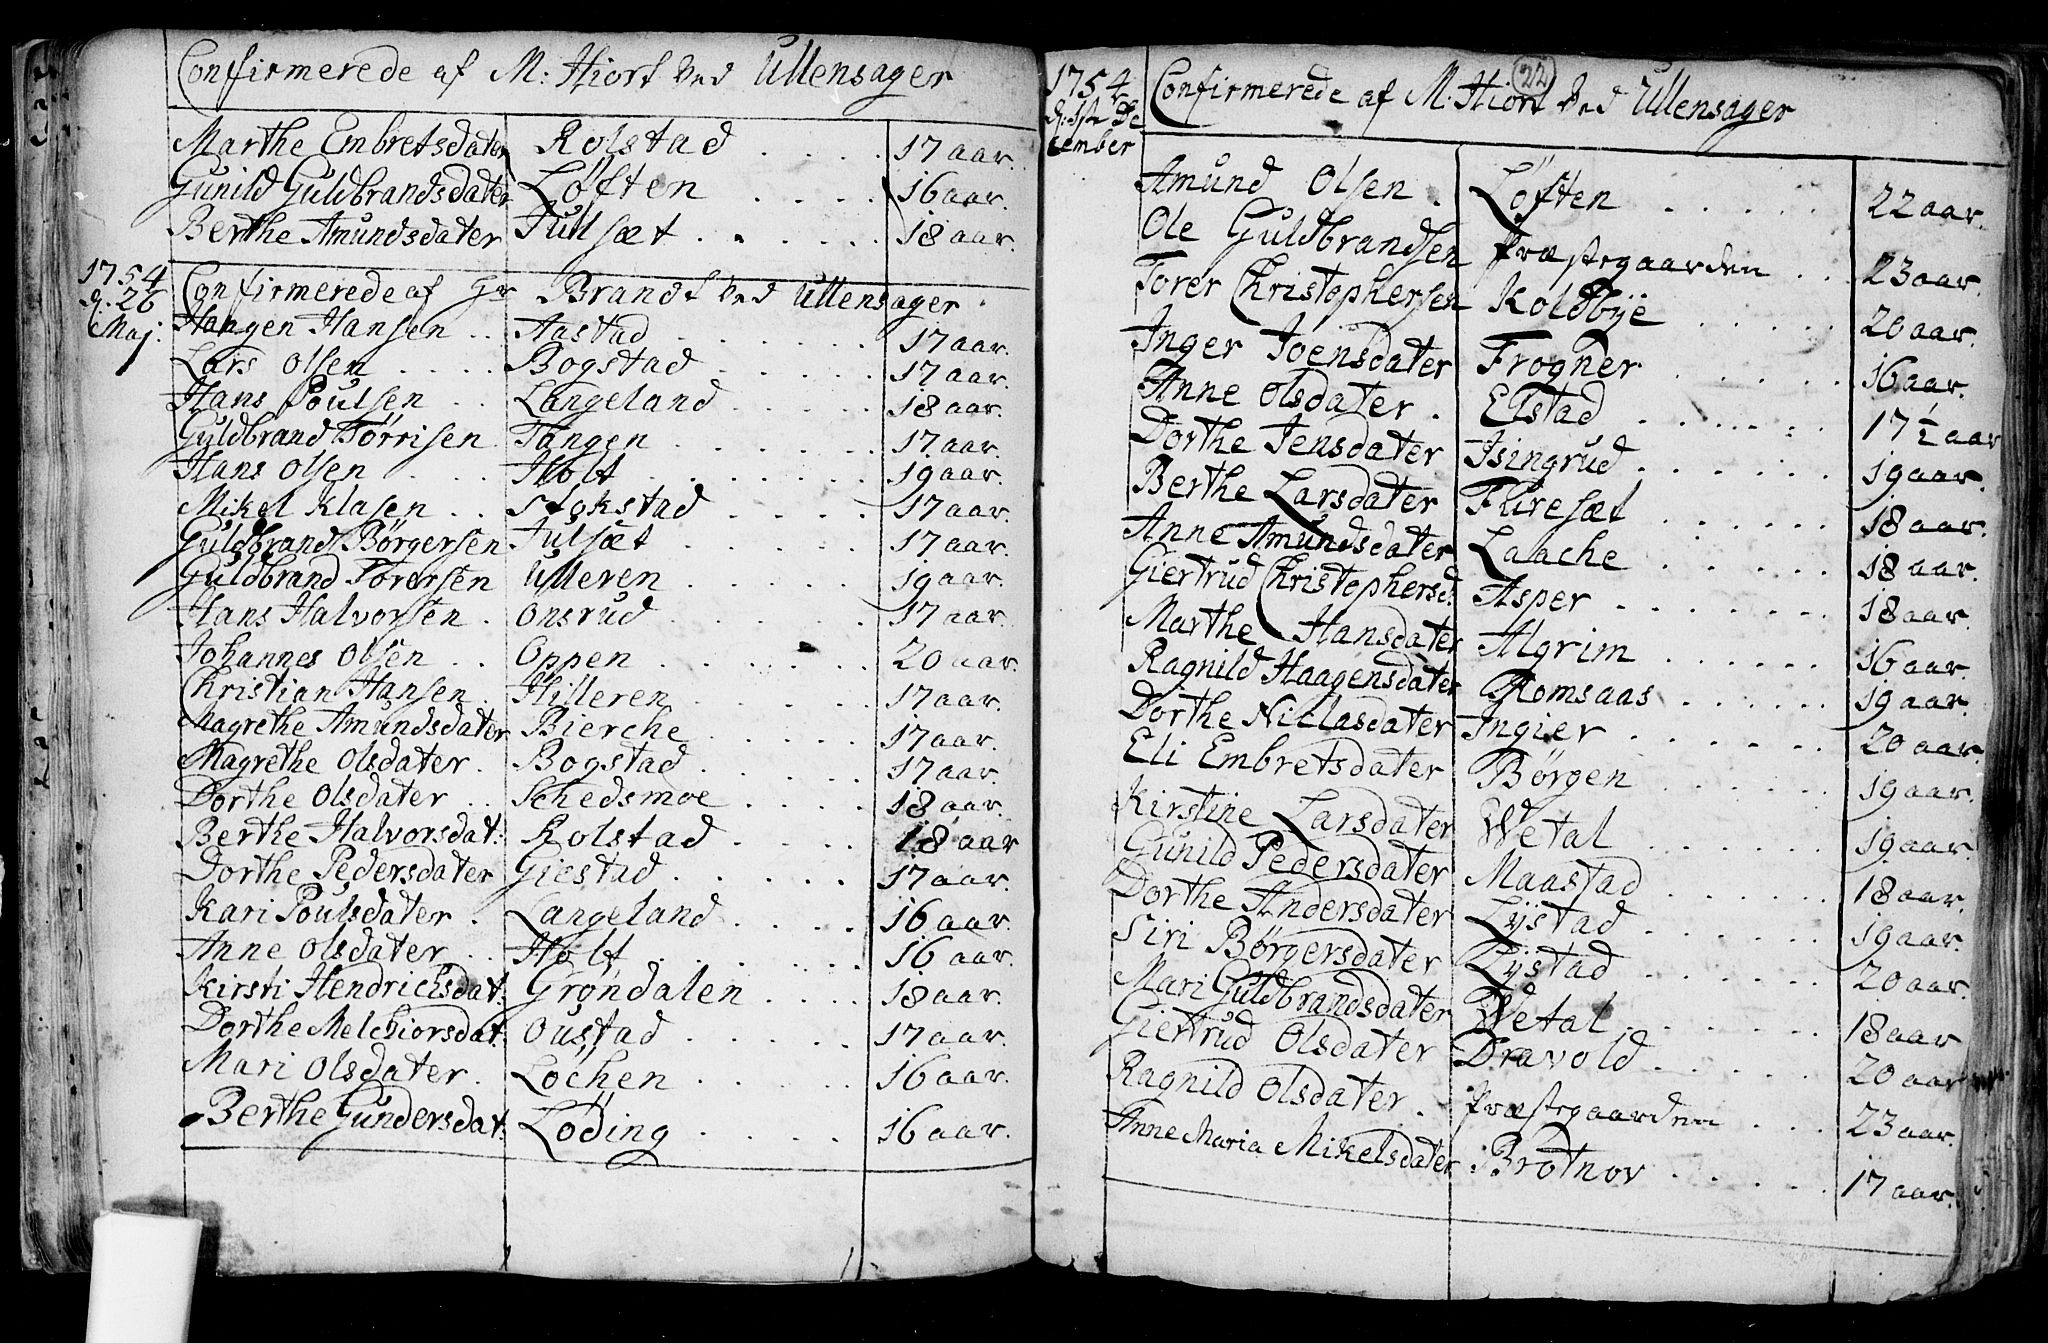 Confirmerede af M: Hiort Ved Ullensager
Marthe Embretsdater Rolstad . . . . 17 aar.
Gunild Guldbrandsdater Løften . . . . 16 aar.
Berthe Amundsdater Julsæt . . . . . 18 aar.
1754 d. 26 Maj. Confirmerede af Hr Brandt Ved Ullensager
Haagen Hansen . . Aastad . . . . . . 17 aar.
Lars Olsen . . . . Bogstad . . . . . 17 aar.
Hans Poulsen . . Langeland . . . . . 18 aar.
Guldbrand Tørrisen Tangen . . . . . . 17 aar.
Hans Olsen . . . . Holt . . . . . . . 19 aar.
Mikel Klasen . . Stokstad . . . . . 17 aar.
Guldbrand Børgersen Julsæt . . . . . . 17 aar.
Guldbrand Torersen Ulleren . . . . . . 19 aar.
Hans Halvorsen . Onsrud . . . . . . 17 aar.
Johannes Olsen . . Oppen . . . . . . 20 aar.
Christian Hansen . Hilleren . . . . . . 17 aar.
Magrethe Amundsdater Bierche . . . . . 17 aar.
Magrethe Olsdater . Bogstad . . . . . 17 aar.
Dorthe Olsdater . . Schedsmoe . . . . 18 aar.
Berthe Halvorsdat: Rolstad . . . . 18 aar
Dorthe Pedersdater Giestad . . . . . 17 aar.
Kari Poulsdater . Langeland . . . . 16 aar.
Anne Olsdater . . Holt . . . . . . 16 aar.
Kirsti Hendrichsdat: Grøndalen . . . . 18 aar.
Dorthe Melchiorsdat: Oustad . . . . . 17 aar.
Mari Olsdater . Lochen . . . . . 16 aar.
Berthe Gundersdat: Loding . . . . 16 aar.
22
1754 d: 1ste December Confirmerede af M. Hiort Ved Ullensager
Amund Olsen . Løften . . . . . 22 aar.
Ole Guldbrandsen Præstegaarden . . 23 aar.
Torer Christophersen Koldbÿe . . . . . 20 aar.
Inger Joensdater Frogner . . . . . 16 aar.
Anne Olsdater . Elstad . . . . . . 17 1/2 aar
Dorthe Jensdater Isingrud . . . . . . 19 aar.
Berthe Larsdater Fliresæt . . . . . . 18 aar.
Anne Amundsdater Laache . . . . . . 18 aar.
Giertrud Christophersd: Asper . . . . . . 18 aar.
Marthe Hansdater Algrim . . . . . . 16 aar.
Ragnild Haagensdater Romsaas . . . . . 19 aar.
Dorthe Niclasdater Ingier . . . . . . 20 aar.
Eli Embretsdater Børgen . . . . . . 19 aar.
Kirstine Larsdater Wetal . . . . . . 19 aar.
Gunild Pedersdater Maastad . . . . . 18 aar.
Dorthe Andersdater Lÿstad . . . . . . 19 aar.
Siri Børgersdater Lÿstad . . . . . . 20 aar.
Mari Guldbrandsdater Wetal . . . . . . 18 aar
Giertrud Olsdater Dravold . . . . . 20 aar
Ragnild Olsdater . Præstegaarden . . . 23 aar.
Anne Maria Mikelsdater : Brotnov . . . . . 17 aar.